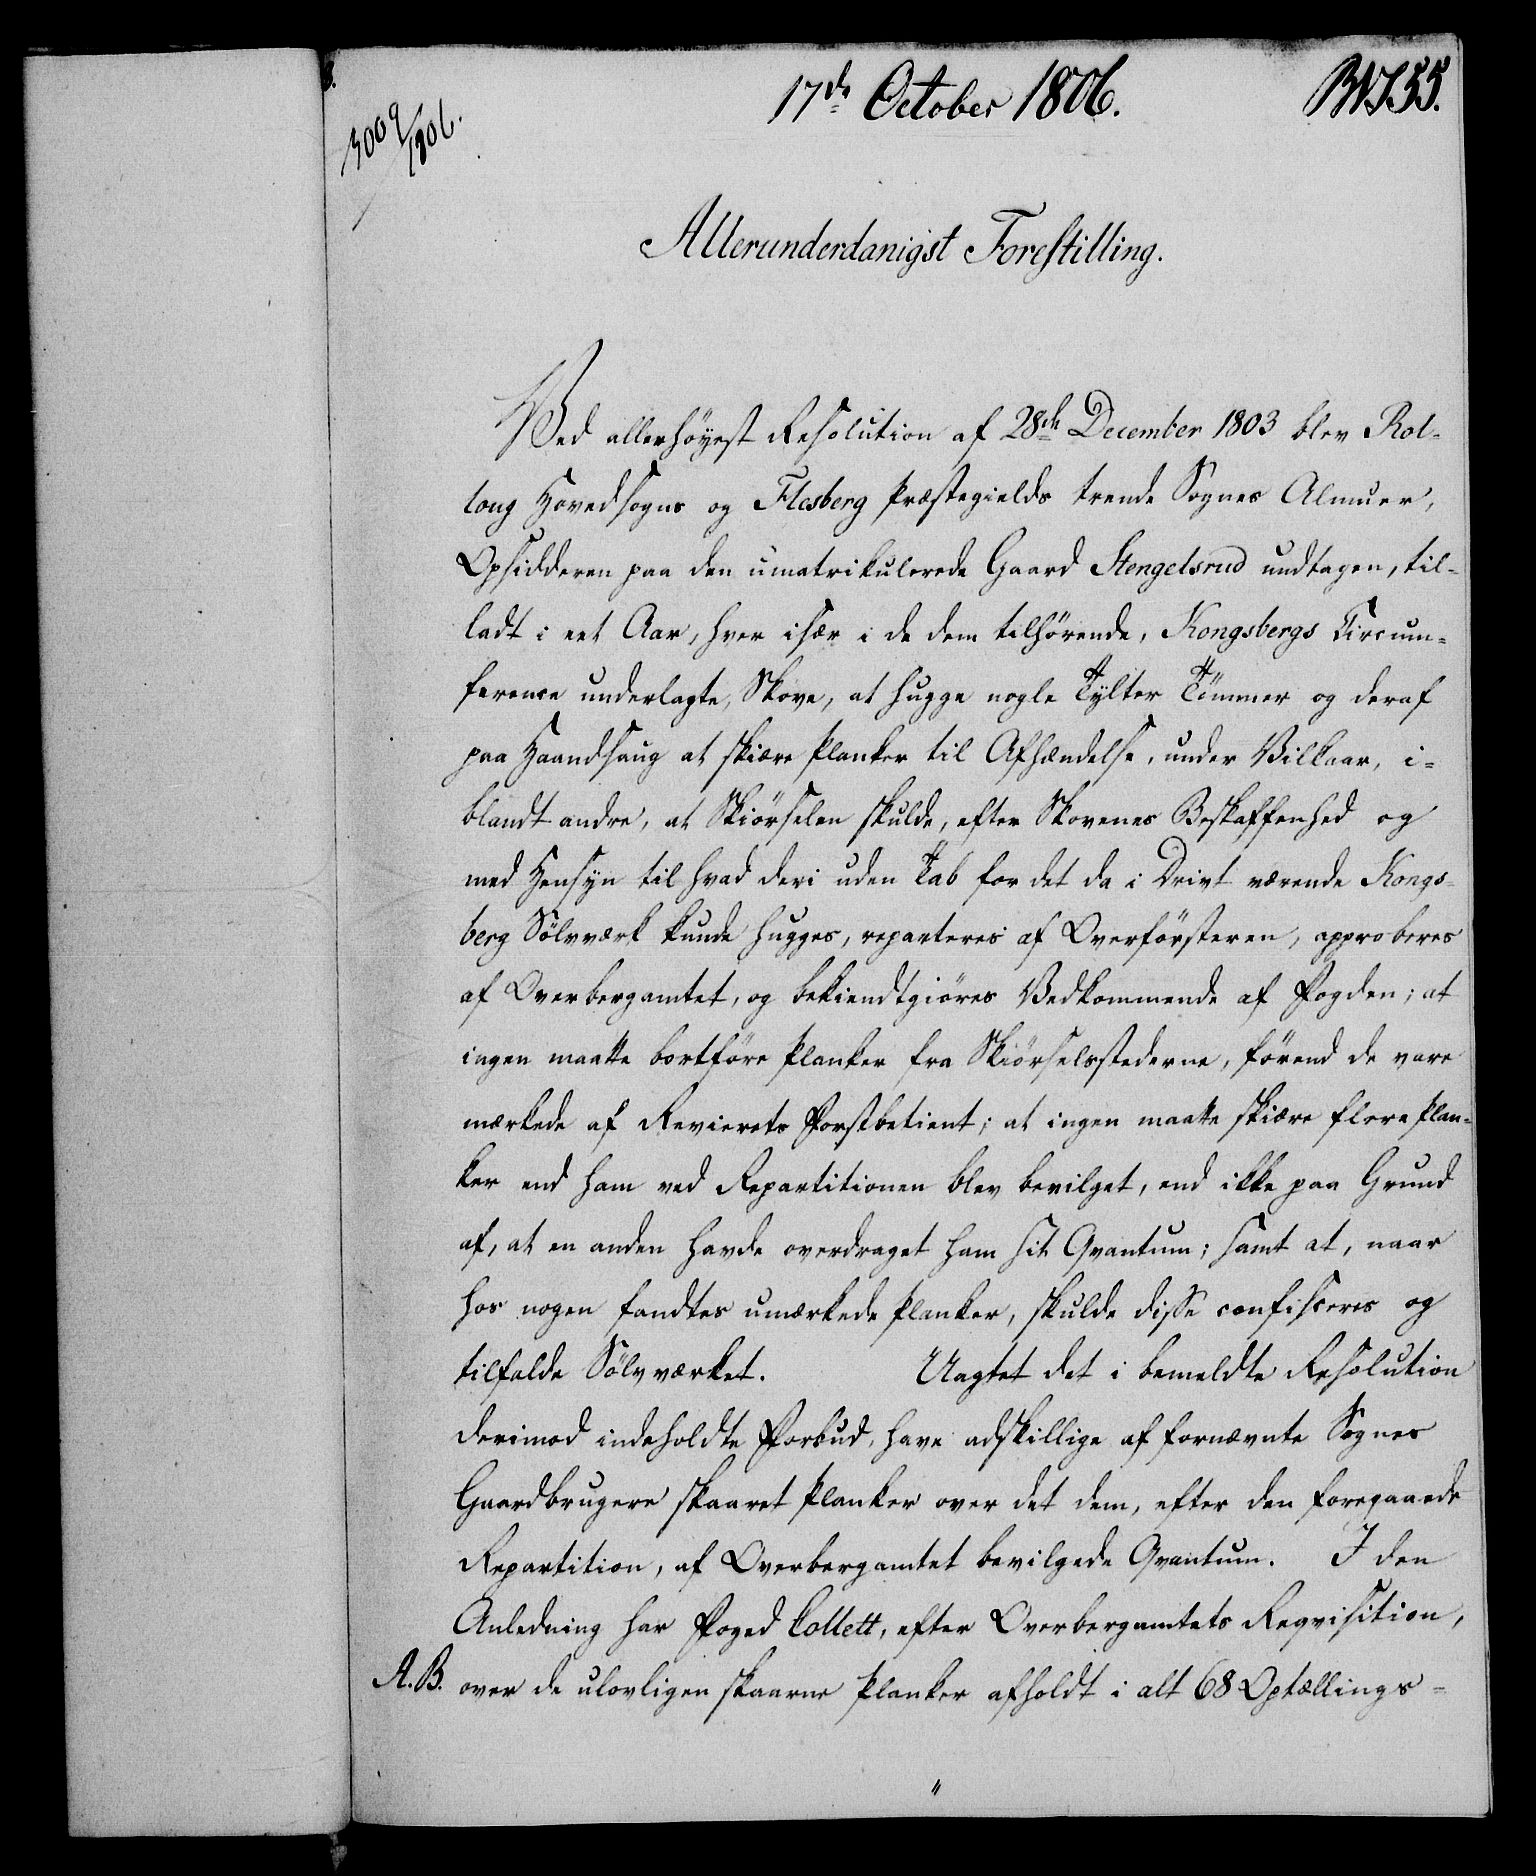 17de October 1806.
3009/1806.
Allerunderdanigst Forestilling.
Ved allerhöyest Resolution af 28de December 1803 blev Rol-
loug Hovedsogns og Flesberg Præstegields trende Sognes Almuer,
Opsidderen paa den umatrikulerede Gaard Stengelsrud undtagen, til-
ladt i eet Aar, hver især i de dem tilhörende, Kongsbergs Circum-
ference underlagte, Skove, at hugge nogle Tylter Tömmer og deraf
paa Haandsaug at skiære Planker til Afhændelse, under Vilkaar, i-
blandt andre, at Skiörselen skulde, efter Skovenes Beskaffenhed og
med Hensyn til hvad deri uden Tab for det da i Drivt værende Kongs-
berg Sölvværk kunde hugges, reparteres af Overförsteren, approberes
af Overbergamtet, og bekiendtgiöres Vedkommende af Fogden; at
ingen maatte bortföre Planker fra Skiörselsstederne, förend de vare
mærkede af Revierets Forstbetient; at ingen maatte skiære flere Plan-
ker end ham ved Repartitionen blev bevilget, end ikke paa Grund
af, at en anden havde overdraget ham sit Qvantum; samt at, naar
hos nogen fandtes umærkede Planker, skulde disse confisceres og
tilfalde Sölvværket. Uagtet det i bemeldte Resolution
derimod indeholdte Forbud, have adskillige af fornævnte Sognes
Gaardbrugere skaaret Planker over det dem, efter den foregaaede
Repartition, af Overbergamtet bevilgede Qvantum. I den
Anledning har Foged Collett, efter Overbergamtets Reqvisition,
A.B. over de ulovligen skaarne Planker afholdt i alt 68 Optællings-